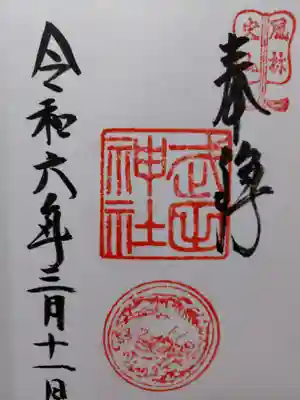 奉拝
風林
火山
武田
神社
令和六年三月十一日